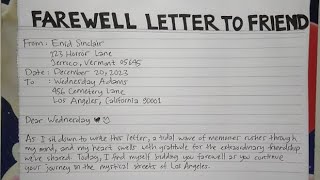 FAREWELL LETTER TO FRIEND
From: Enid Sinclair
123 Horror Lane
Jericco, Vermont 05695
Date: December 20, 2023
To: Wednesday Adams
456 Cemetery Lane
Los Angeles, California 90001
Dear Wednesday
As I sit down to write this letter, a tidal wave of memories rushes through
my mind, and my heart swells with gratitude for the extraordinary friendship
we've shared. Today, I find myself bidding you farewell as you continue
your journey on the mystical streets of Los Angeles.